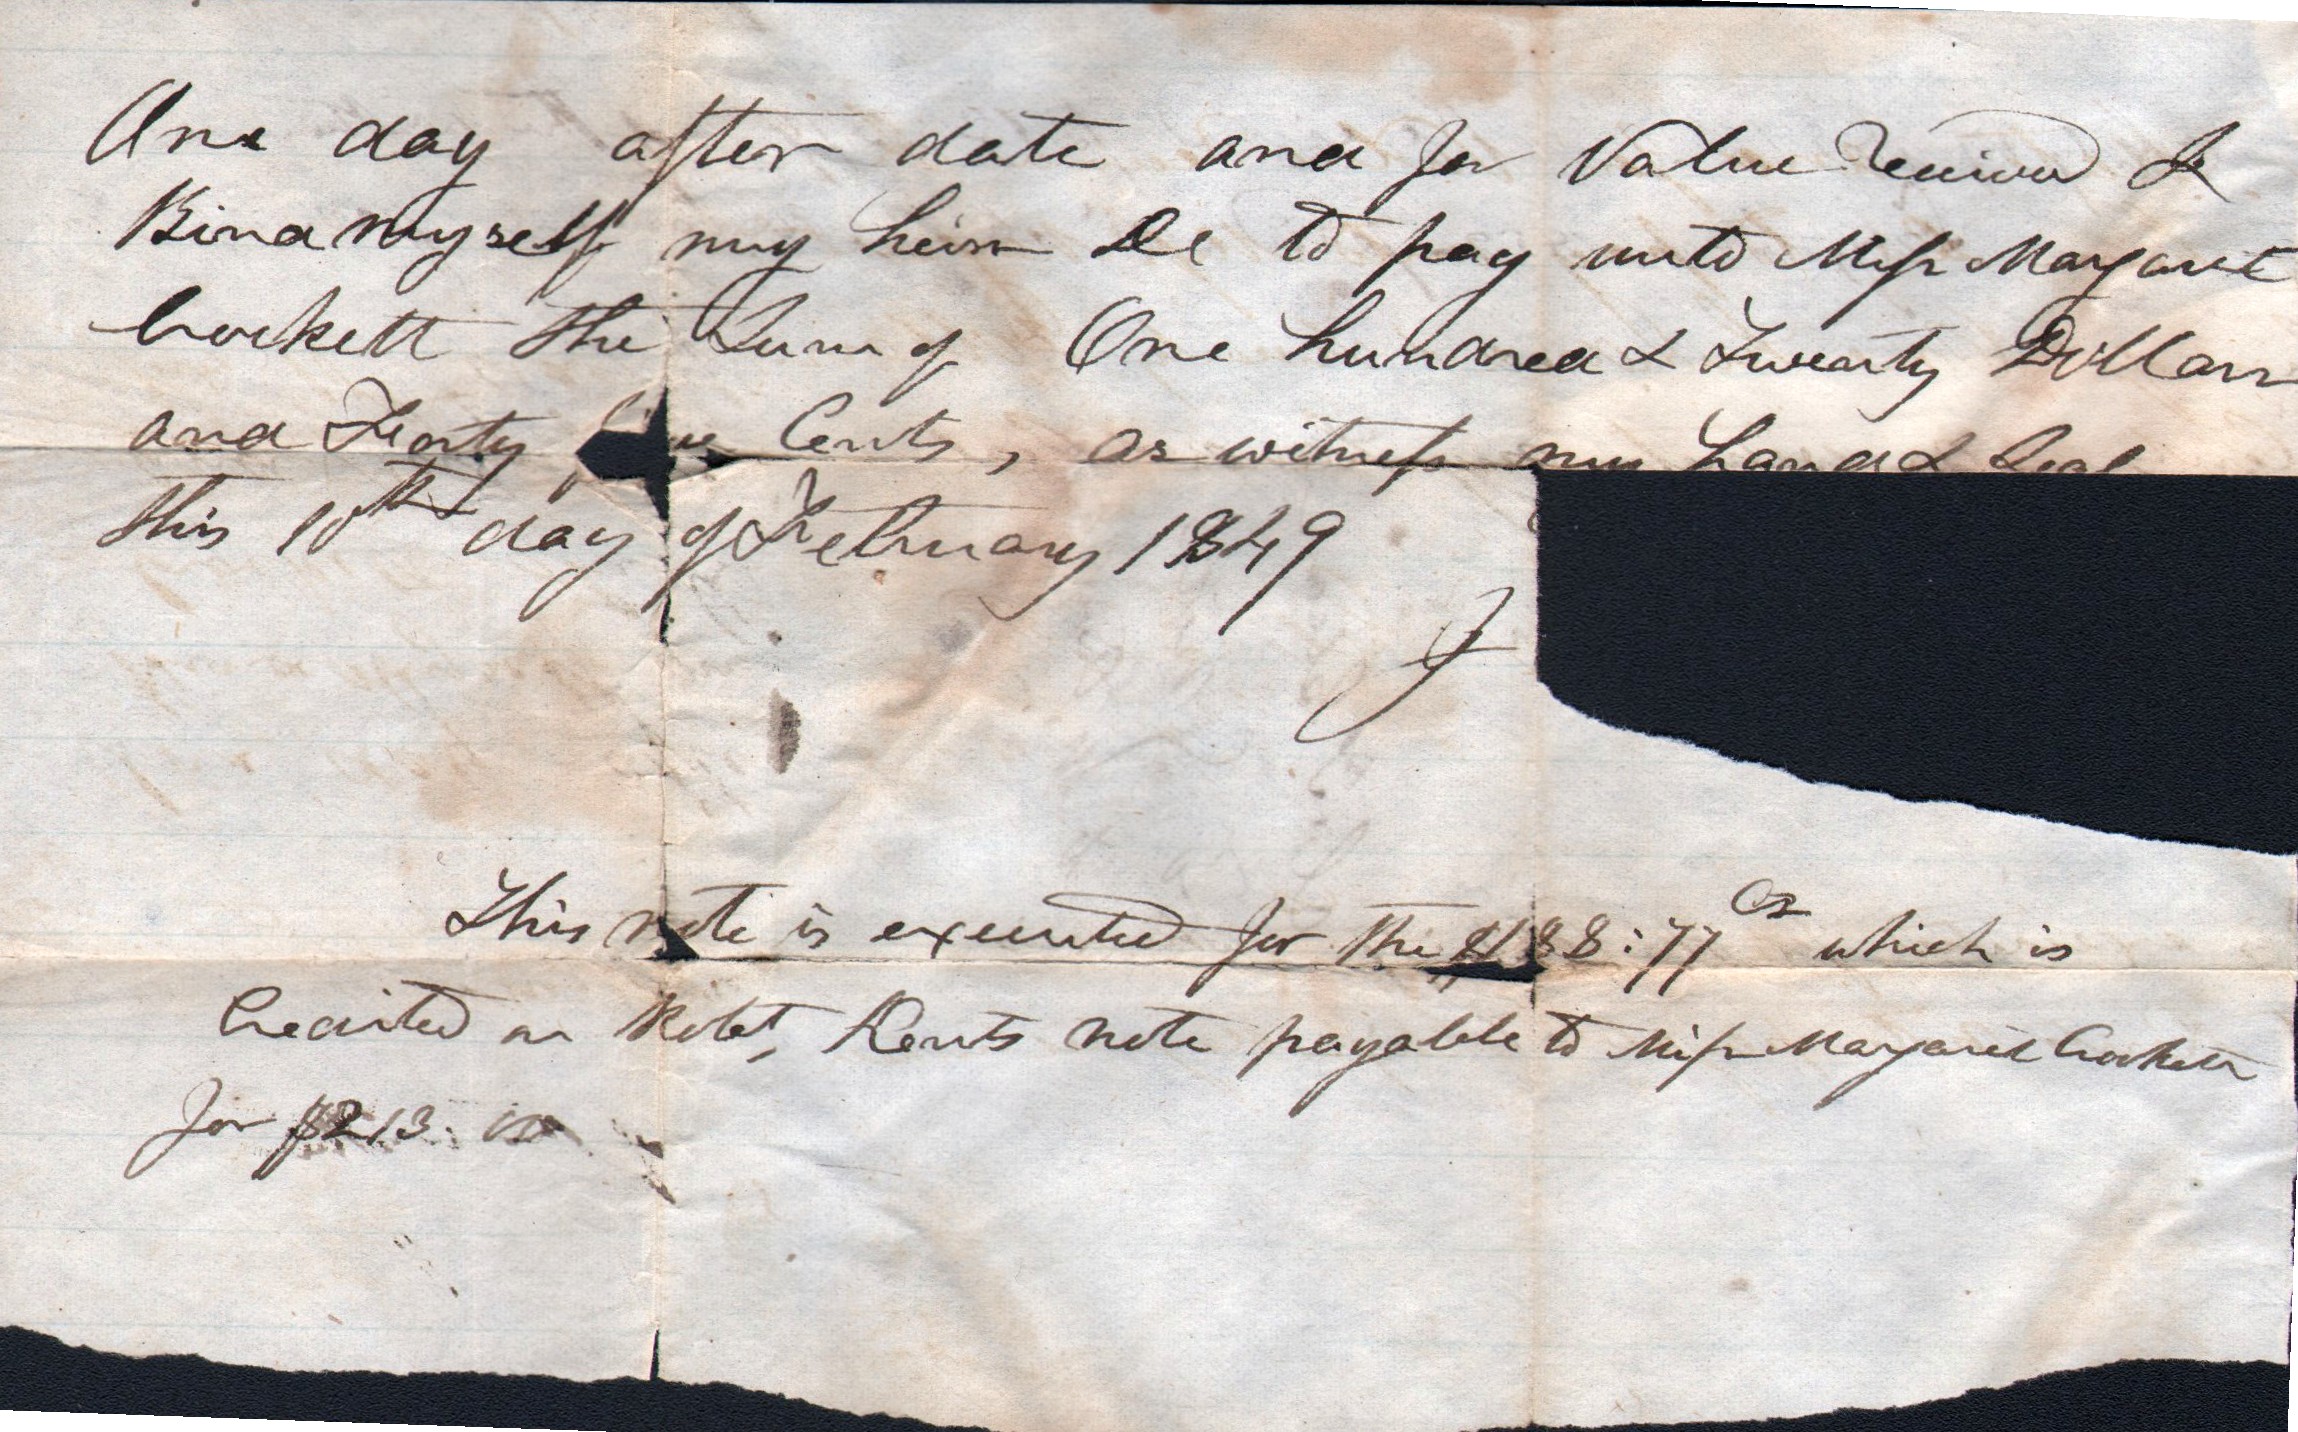 One day after date and for Value Received I
Bind myself my heirs &c to pay unto Miss Margaret
Crockett the Sum of One hundred & Twenty Dollars
and Forty Cents, as witness my hand & Seal
this 10th day of February 1849
J
This note is executed for the $188:77 Cs which is
Credited on Robt, Kents note payable to Miss Margaret Crockett
for $213.